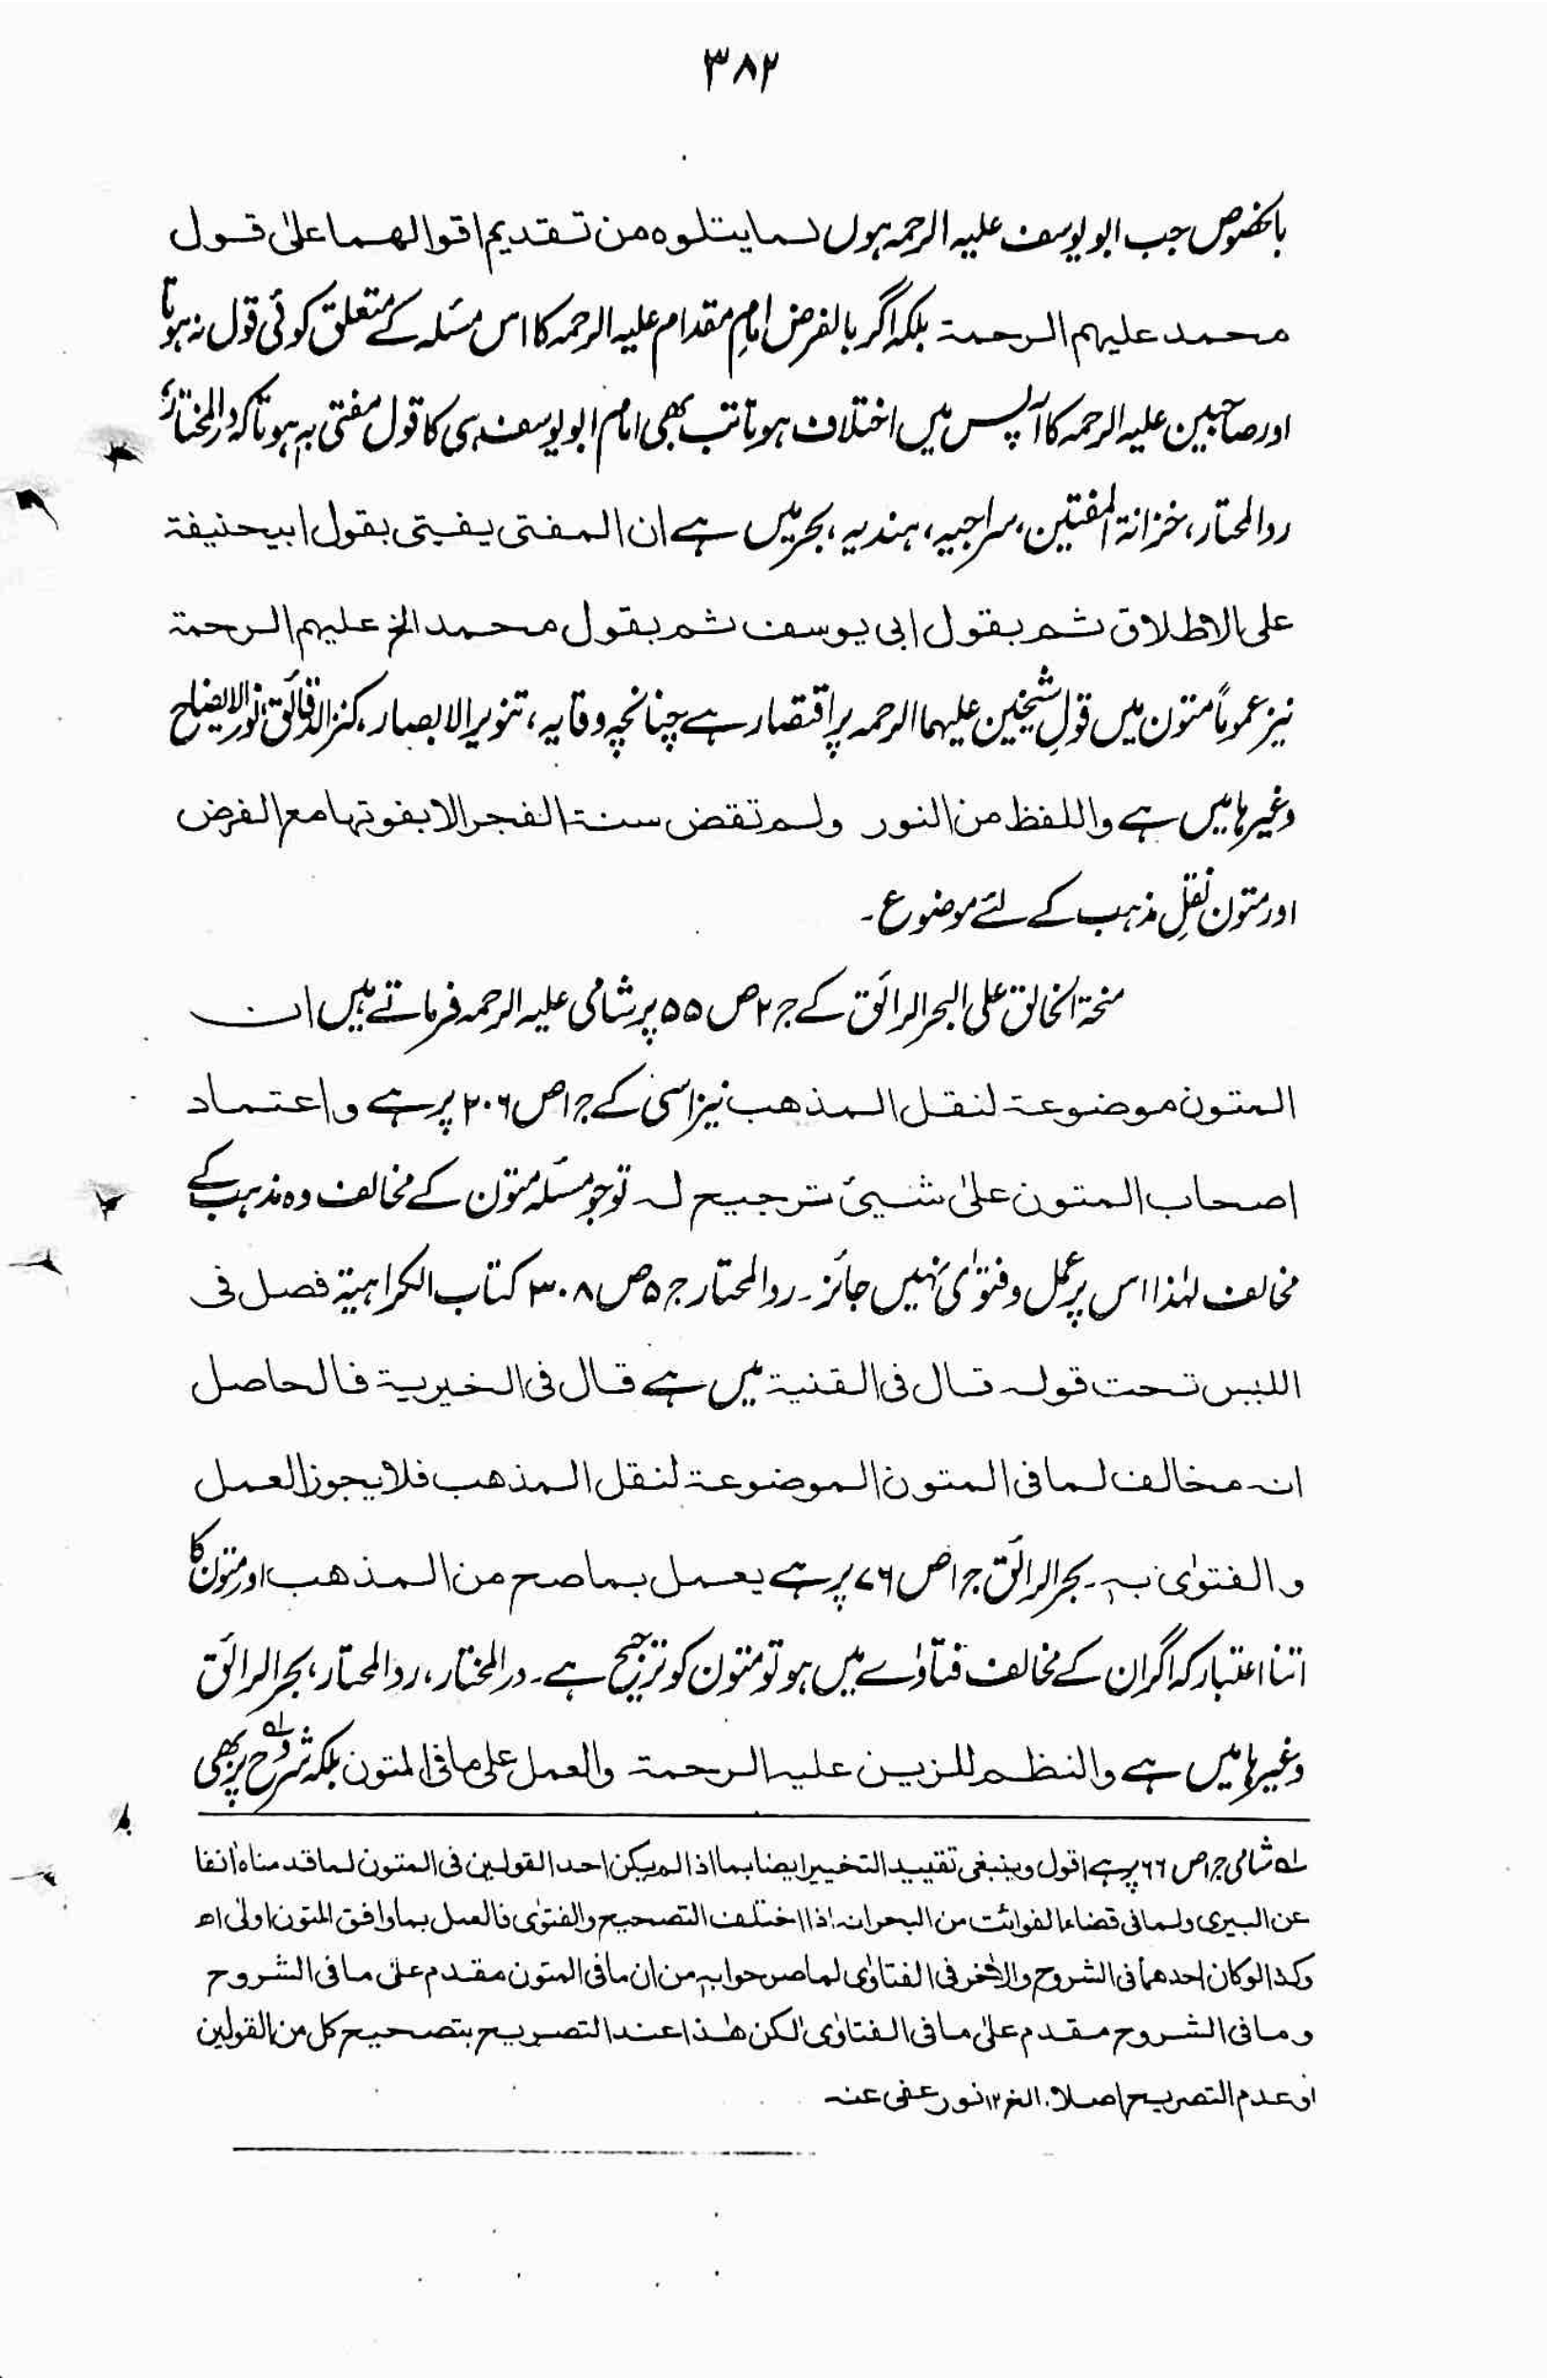 ۳۸۲
بالخصوص جب ابو یوسف علیہ الرحمہ ہوں لما یتلوہ من تقدیم اقوالھما علیٰ قول
محمد علیہم الرحمۃ بلکہ اگر بالفرض امامِ مقدام علیہ الرحمہ کا اس مسئلہ کے متعلق کوئی قول نہ ہوتا
اور صاحبین علیہ الرحمہ کا آپس میں اختلاف ہوتا تب بھی امام ابو یوسف ہی کا قول مفتی بہ ہوتا کہ درالمختار،
ردالمحتار، خزانۃ المفتین، سراجیہ، ہندیہ، بحر میں ہے ان المفتی یفتی بقول ابیحنیفۃ
علی الاطلاق ثم بقول ابی یوسف ثم بقول محمد الخ علیہم الرحمۃ
نیز عموماً متون میں قولِ شیخین علیہما الرحمہ پر اقتصار ہے چنانچہ وقایہ، تنویر الابصار، کنز الدقائق، نور الایضاح
وغیرہا میں ہے واللفظ من النور ولم تقض سنۃ الفجر الا بفوتہا مع الفرض
اور متون نقلِ مذہب کے لئے موضوع۔
منحۃ الخالق علی البحر الرائق کے ج ۲ ص ۵۵ پر شامی علیہ الرحمہ فرماتے ہیں ان
المتون موضوعۃ لنقل المذھب نیز اسی کے ج ۱ ص ۲۰۶ پر ہے واعتماد
اصحاب المتون علیٰ شیئ ترجیح لہ تو جو مسئلہ متون کے مخالف وہ مذہب کے
مخالف لہٰذا اس پر عمل و فتوٰی نہیں جائز۔ ردالمحتار ج ۵ ص ۳۰۸ کتاب الکراہیۃ فصل فی
اللبس تحت قولہ قال فی القنیۃ میں ہے قال فی الخیریۃ فالحاصل
انہ مخالف لما فی المتون الموضوعۃ لنقل المذھب فلا یجوز العمل
والفتوٰی بہ۔ بحر الرائق ج ۱ ص ۷۶ پر ہے یعمل بما صح من المذھب اور متون کا
اتنا اعتبار کہ اگر ان کے مخالف فتاوٰے میں ہو تو متون کو ترجیح ہے۔ درالمختار، ردالمحتار، بحر الرائق
وغیرہا میں ہے والنظم للزین علیہ الرحمۃ والعمل علی ما فی المتون بلکہ شروح لہ پر بھی
لہ شامی ج ۱ ص ۶۶ پر ہے اقول وینبغی تقیید التخییر ایضا بما اذا لم یکن احد القولین فی المتون لما قدمناہ اٰنفا
عن البیری ولما فی قضاء الفوائت من البحر انہ اذا اختلف التصحیح والفتوٰی فالعمل بما وافق المتون اولیٰ اھ
وکذا لو کان احدھما فی الشروح والاٰخر فی الفتاوٰی لما صرحوا بہ من ان ما فی المتون مقدم علیٰ ما فی الشروح
وما فی الشروح مقدم علیٰ ما فی الفتاوٰی لکن ھٰذا عند التصریح بتصحیح کل من القولین
او عدم التصریح اصلا۔ الخ ۱۲ نور عفی عنہ